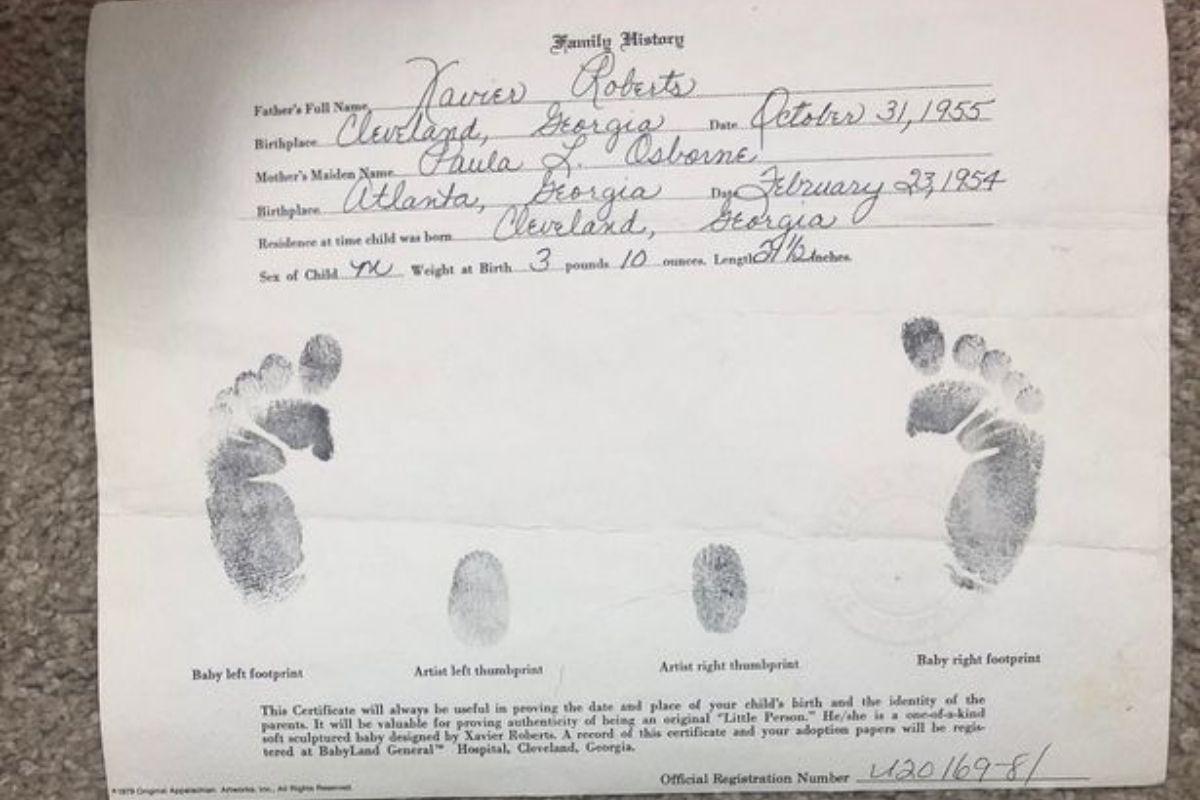 Family History
Father's Full Name Xavier Roberts
Birthplace Cleveland, Georgia Date October 31, 1955
Mother's Maiden Name Paula L. Osborne
Birthplace Atlanta, Georgia Date February 23, 1954
Residence at time child was born Cleveland, Georgia
Sex of Child M Weight at Birth 3 pounds 10 ounces. Length 21½ Inches.
Baby left footprint
Artist left thumbprint
Artist right thumbprint
Baby right footprint
This Certificate will always be useful in proving the date and place of your child's birth and the identity of the
parents. It will be valuable for proving authenticity of being an original "Little Person." He/she is a one-of-a-kind
soft sculptured baby designed by Xavier Roberts. A record of this certificate and your adoption papers will be regis-
tered at BabyLand General™ Hospital, Cleveland, Georgia.
Official Registration Number U20169-81
©1979 Original Appalachian Artworks, Inc., All Rights Reserved.